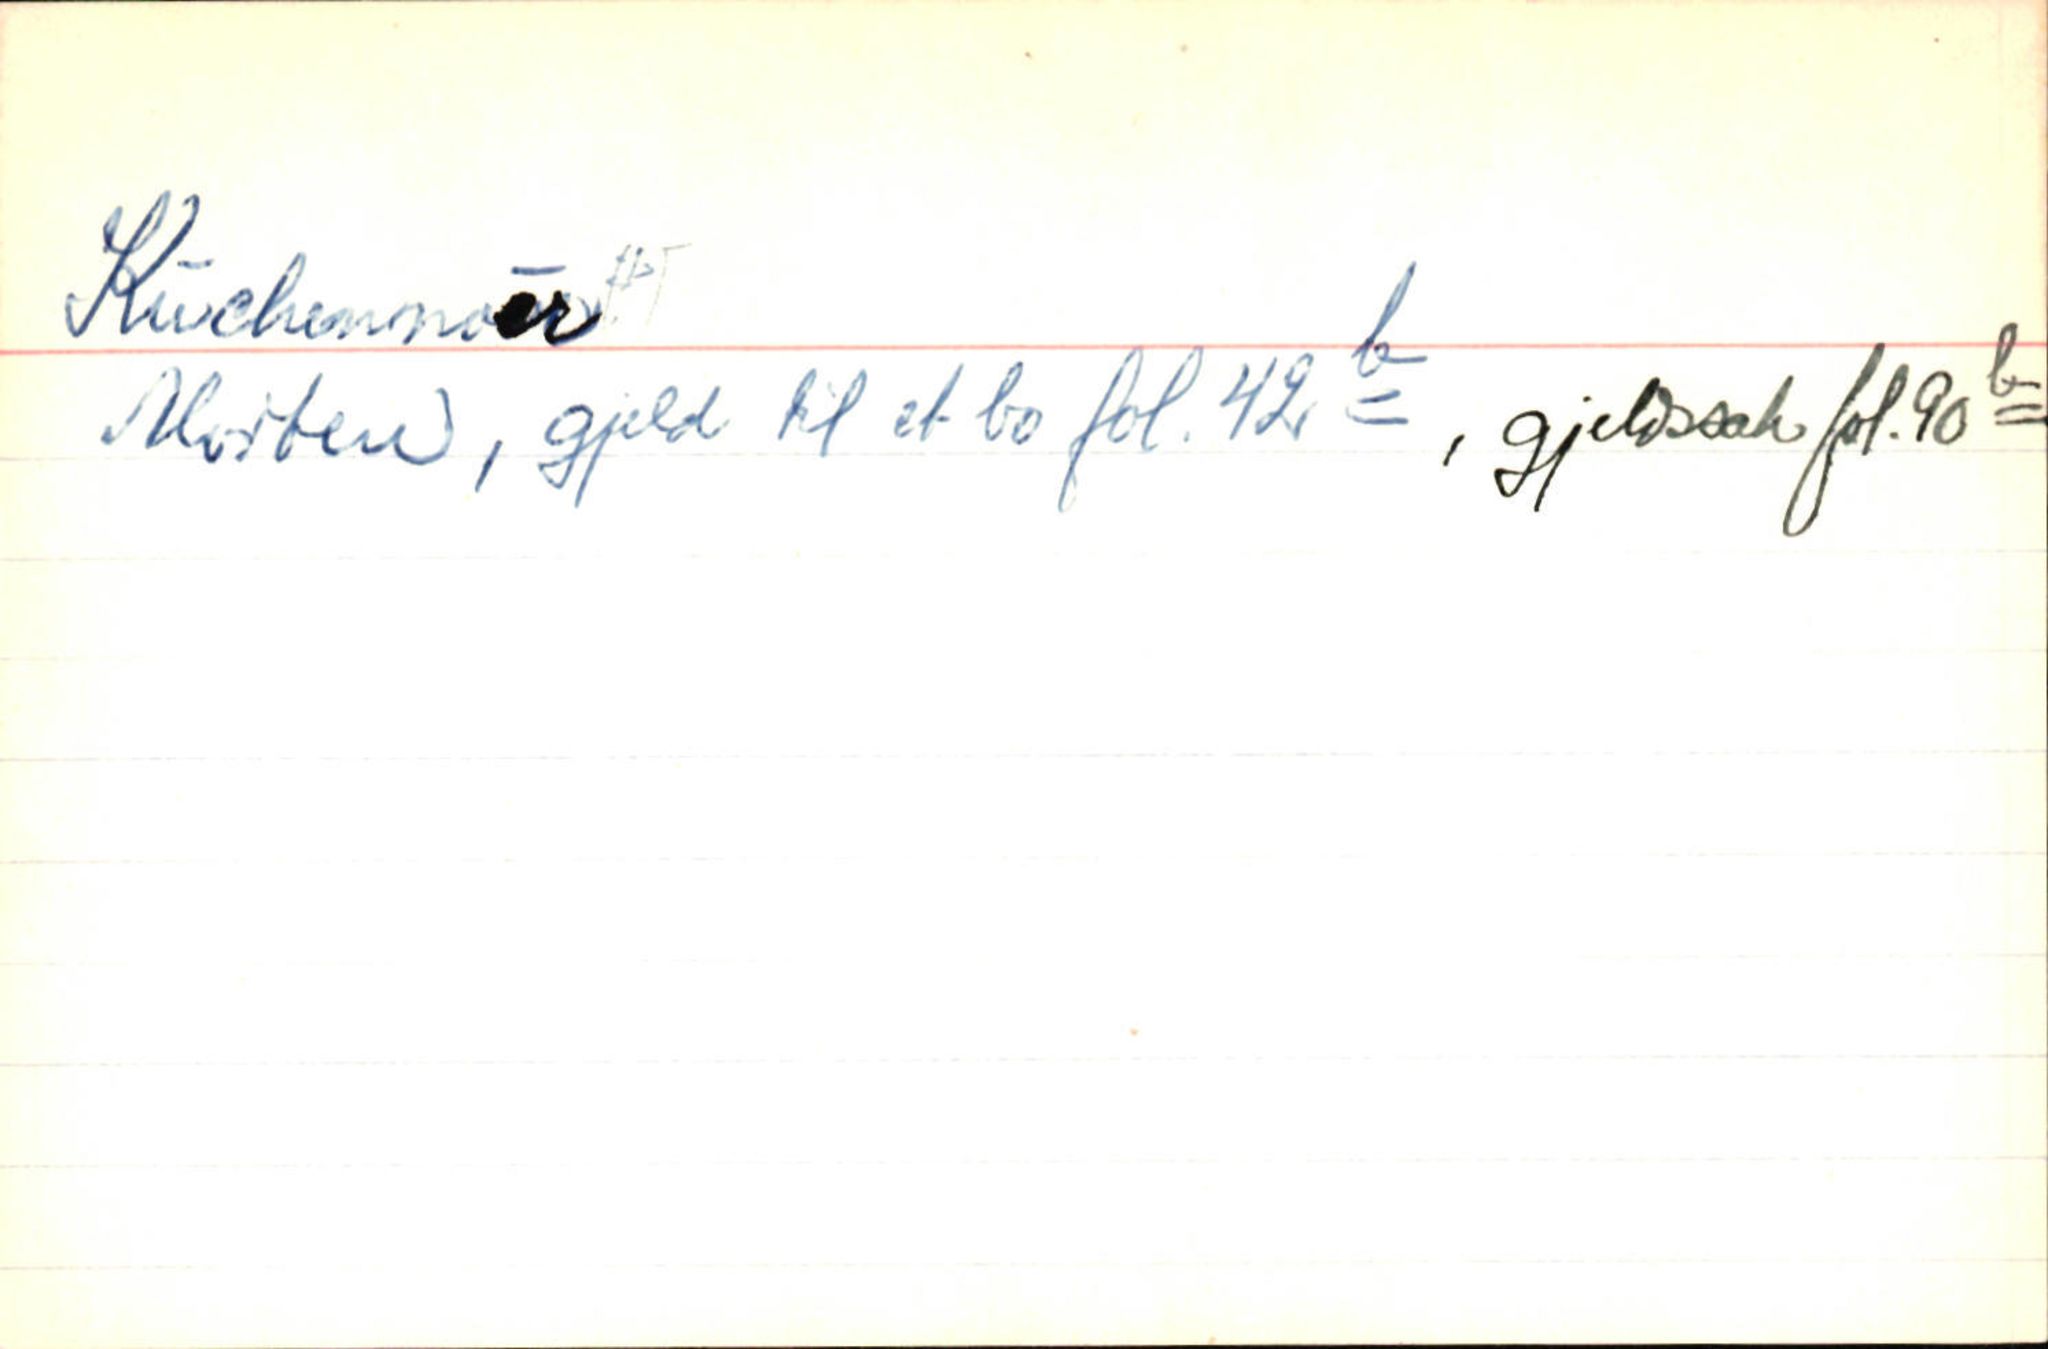 Kuchenmoer
Morten, gjeld til et bo fol. 42 b, gjeldssak fol. 90 b